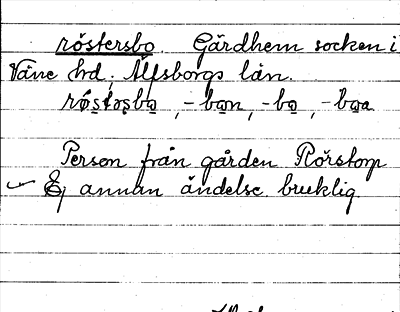 röstersbo. Gärdhem socken i
Väne hd, Älfsborgs län.
röstəsbo, -bon, -bo, -boa
Person från gården Rörstorp
Ej annan ändelse bruklig